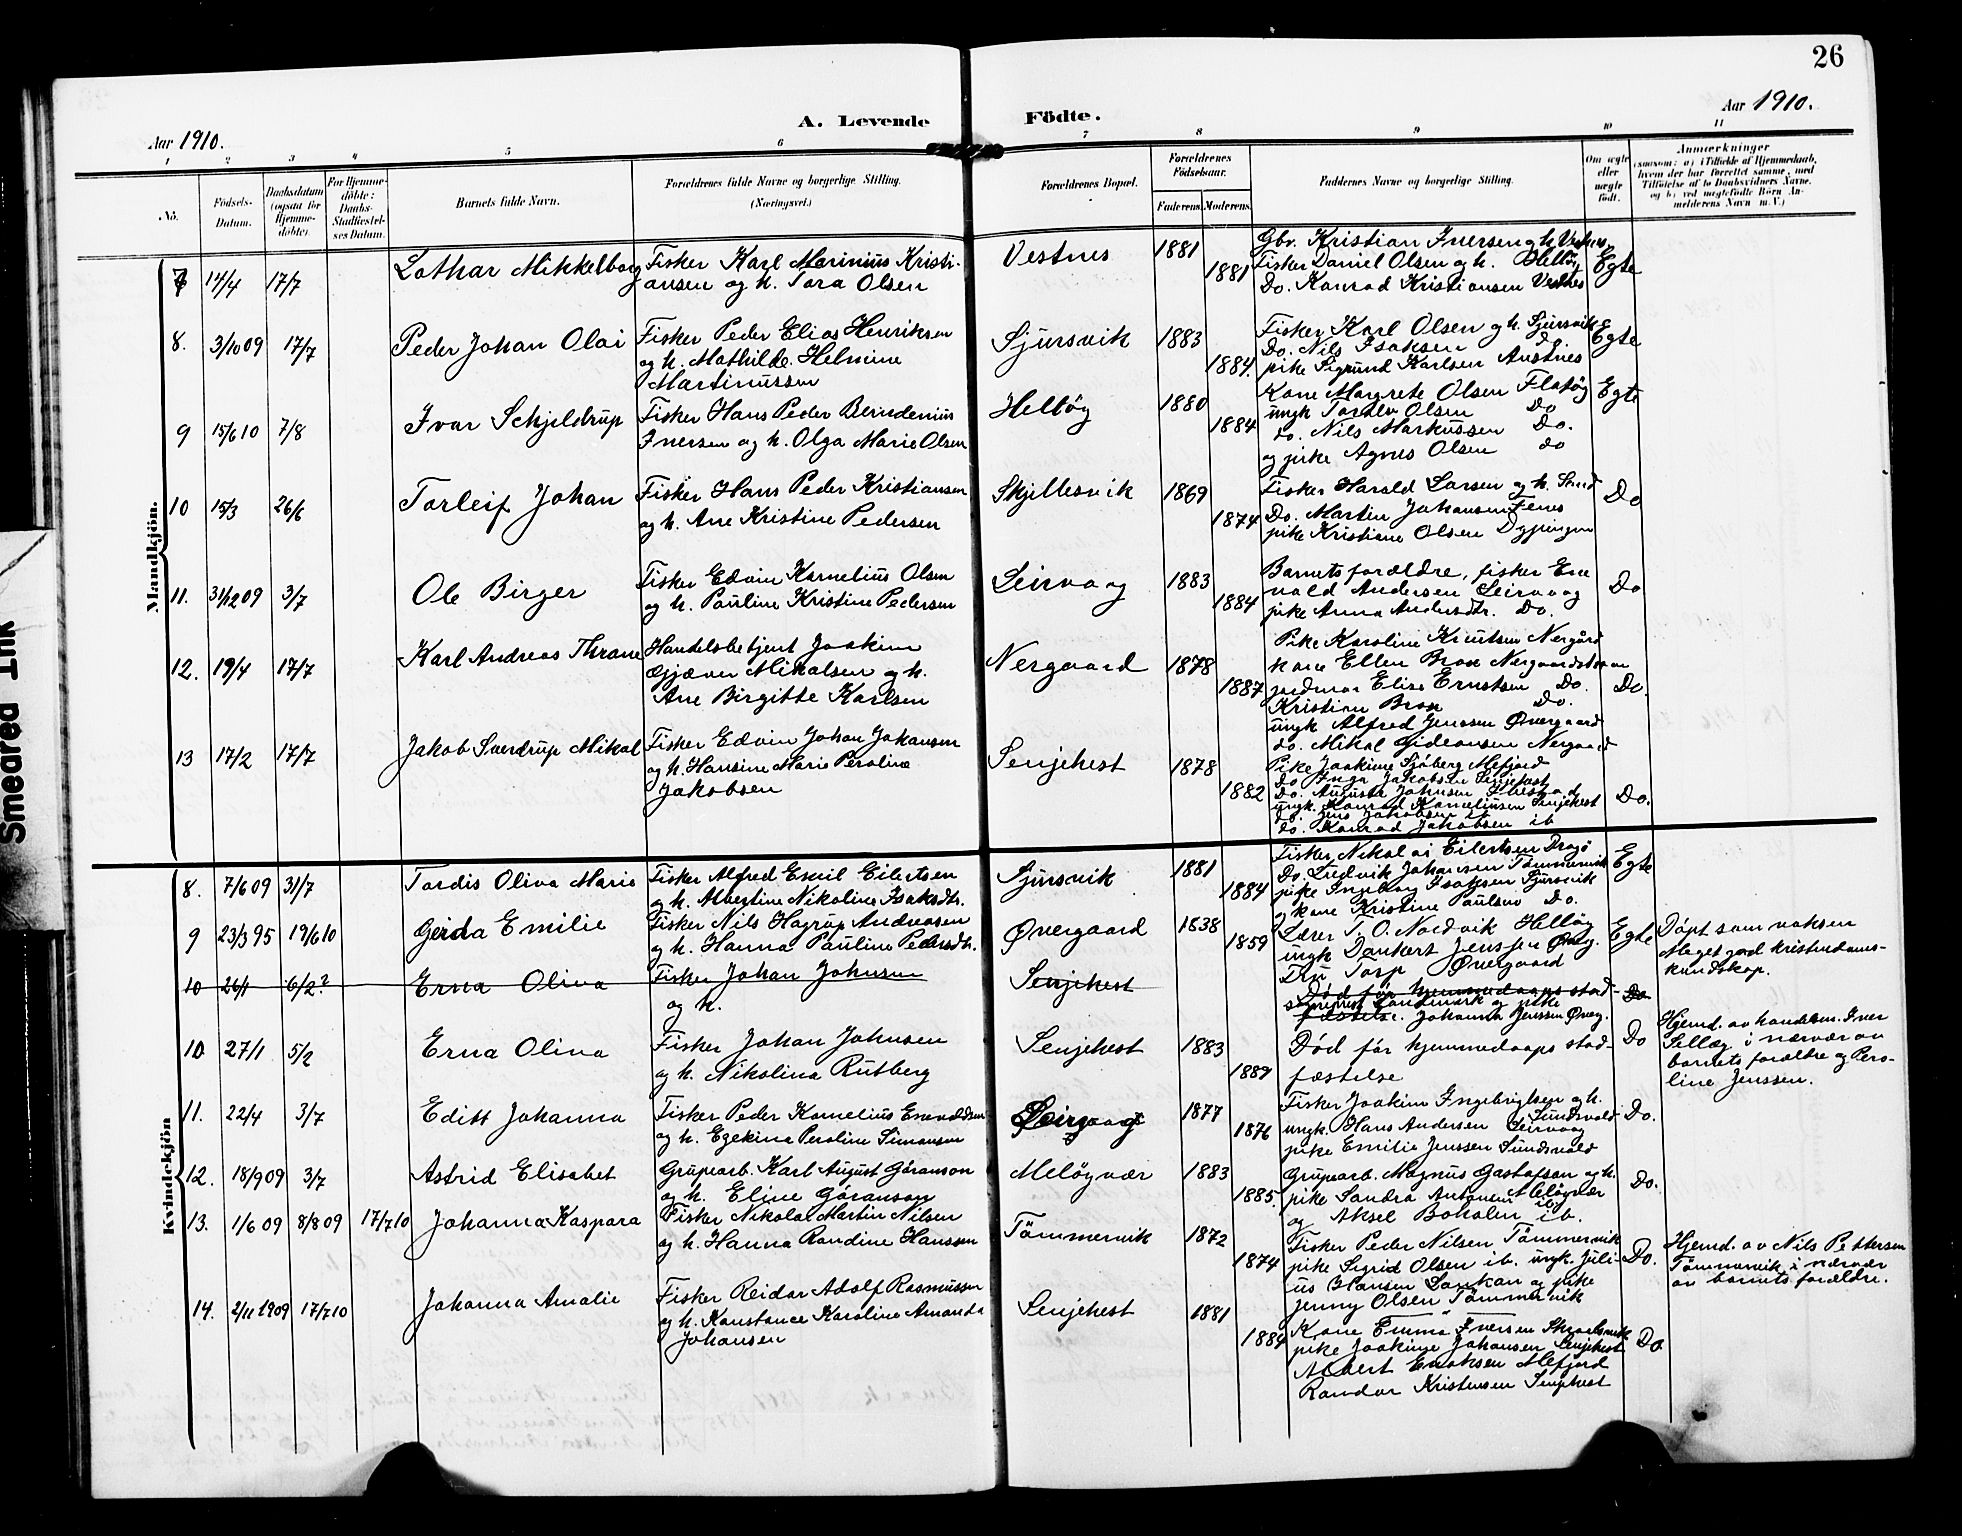 26
Aar 1910.
A. Levende Födte.
Aar 1910.
1 2 3 4 5 6 7 8 9 10 11
No.
Födsels-Datum.
Daabsdatum (ogsaa for Hjemme-döbte).
For Hjemme-döbte: Daabs-Stadfæstel-ses Datum.
Barnets fulde Navn.
Forældrenes fulde Navne og borgerlige Stilling. (Næringsvei.)
Forældrenes Bopæl.
Forældrenes Födselsaar.
Faderens. Moderens.
Faddernes Navne og borgerlige Stilling.
Om ægte eller uægte födt.
Anmærkninger
(saasom: a) i Tilfælde af Hjemmedaab,
hvem der har forrettet samme, med
Tilföielse af to Daabsvidners Navne,
og b) ved uægtefödte Börn An-
melderens Navn m. V.)
Mandkjön.
7 14/4 17/7 Lothar Mikkelborg
Fisker Karl Marinius Kristi-
ansen og h. Tora Olsen
Vestnes 1881 1881
Gbr. Kristian Iversen og h. Vestnes
Fisker Daniel Olsen og h. Hellög
Do. Konrad Kristiansen Vestnes
Egte
8. 3/10 09 17/7 Peder Johan Olai
Fisker Peder Elias Henriksen
og h. Mathilde Helmine
Martinussen
Sjursvik 1883 1884.
Fisker Karl Olsen og h. Sjursvik
Do. Nils Isaksen Do.
pike Sigrund Karlsen Austnes
Egte
9 15/6 10 7/8 Ivar Schjeldrup
Fisker Hans Peder Berndenius
Iversen og h. Olga Marie Olsen
Hellög 1880 1884
Kone Margrete Olsen Flatög
ungk Torolv Olsen Do
do. Nils Markussen Do.
og pike Agnes Olsen do
Egte
10 15/3 26/6 Torleif Johan
Fisker Hans Peder Kristiansen
og h. Ane Kristine Pedersen
Skjellesvik 1869 1874
Fisker Harald Larsen og h. Sand
Do. Martin Johansen Fenes
pike Kristiane Olsen
Do
11. 31/12 09 3/7 Ole Birger
Fisker Edvin Kornelius Olsen
og h. Pauline Kristine Pedersen
Leirvaag 1883 1884
Barnets forældre, fisker Ene
vald Andersen Leirvaag
pike Anna Andersdtr. Do.
Do
12. 19/4 17/7 Karl Andreas Thrane
Handelsbetjent Joakim
Gjæver Mikalsen og h.
Ane Birgitte Karlsen
Nergaard 1878 1887
Pike Karoline Knutsen Nergård
kone Ellen Brox
jordmor Elise Ernstsen Do.
Kristian Brox Do.
ungk Alfred Jenssen Øvergaard
do. Mikal Gideonsen Nergaard
Do.
13 17/2 17/7 Jakob Sverdrup Mikal
Fisker Edvin Johan Johansen
og h. Hansine Marie Peroline
Jakobsen
Senjehest 1878 1882
Pike Joakime Sjöberg Mefjord
Do Inga Jakobsen Senjehest
Do. Augusta Johnsen
ungk. Konrad Korneliussen Senjehest
do. Jens Jakobsen ib
do. Konrad Jakobsen ib
Do.
Kvindekjön
8. 7/6 09 31/7 Tordis Oliva Marie
Fisker Alfred Emil Eilertsen
og h. Albertine Nikoline Isaksdtr.
Sjursvik 1881 1884
Fisker Nikolai Eilertsen Dragö
Do. Ludvik Johansen Tömmervik
pike Ingeborg Isaksen Sjursvik
og kone Kristine Paulsen Do.
Egte
9 23/3 95 19/6 10 Gerda Emilie
Fisker Nils Hagrup Andreasen
og h. Hanna Pauline Pedersdtr.
Øvergaard 1838 1859
Lærer T. O. Nordvik Hellög
ungk Dankert Jenssen Øverg.
Fru Torp Øvergaard
Egte
Döpt som voksen
Meget god kristendoms-
kundskap.
10 26/1 6/2? Erna Oliva
Fisker Johan Johnsen
og h.
Senjehest
Död før hjemmedaaps stad-
fæstelse. Johanna Jenssen Øverg.
Do
10 27/1 5/2 Erna Oliva
Fisker Johan Johnsen
og h. Nikolina Rutberg
Senjehest 1883 1889
Död før hjemmedaaps stad-
fæstelse
Do
Hjemd. av handelsm. Iver
Sellæg i nærvær av
barnets forældre og Pero-
line Jenssen.
11. 22/4 3/7 Edith Johanna
Fisker Peder Kornelius Enevoldsen
og h. Egekina Peroline Simonsen
Leirvaag 1877 1876
Fisker Joakim Ingebrigtsen og h.
ungk. Hans Andersen Leirvaag Sundsvold
pike Emilie Jenssen Sundsvold
Do.
12. 18/9 09 3/7 Astrid Elisabet
Grupearb. Karl August Göranson
og h. Eline Göranson
Melögvær 1883 1885.
Grupearb. Magnus Gustafson og h.
pike Sandra Antonsen Melögvær
og Aksel Boholen ib.
Do.
13. 1/6 09 8/8 09 17/7 10 Johanna Kaspara
Fisker Nikolai Martin Nilsen
og h. Hanna Randine Hanssen
Tömmervik 1872 1874
Fisker Peder Nilsen Tömmervik
pike Sigrid Olsen ib. ungk. Juli-
us Hansen Lankan og pike
Jenny Olsen Tömmervik
Do.
Hjemd. av Nils Pettersen
Tömmervik i nærvær
av barnets forældre.
14. 2/11 1909 17/7 10 Johanna Amalie
Fisker Reidar Adolf Rasmussen
og h. Konstance Karoline Amanda
Johansen
Senjehest 1881 1884
Kone Emma Iversen Skrolsvik
pike Joakime Johansen Senjehest
Albert Enoksen Mefjord
Randor Kristensen Senjehest
Do
Smeared Ink